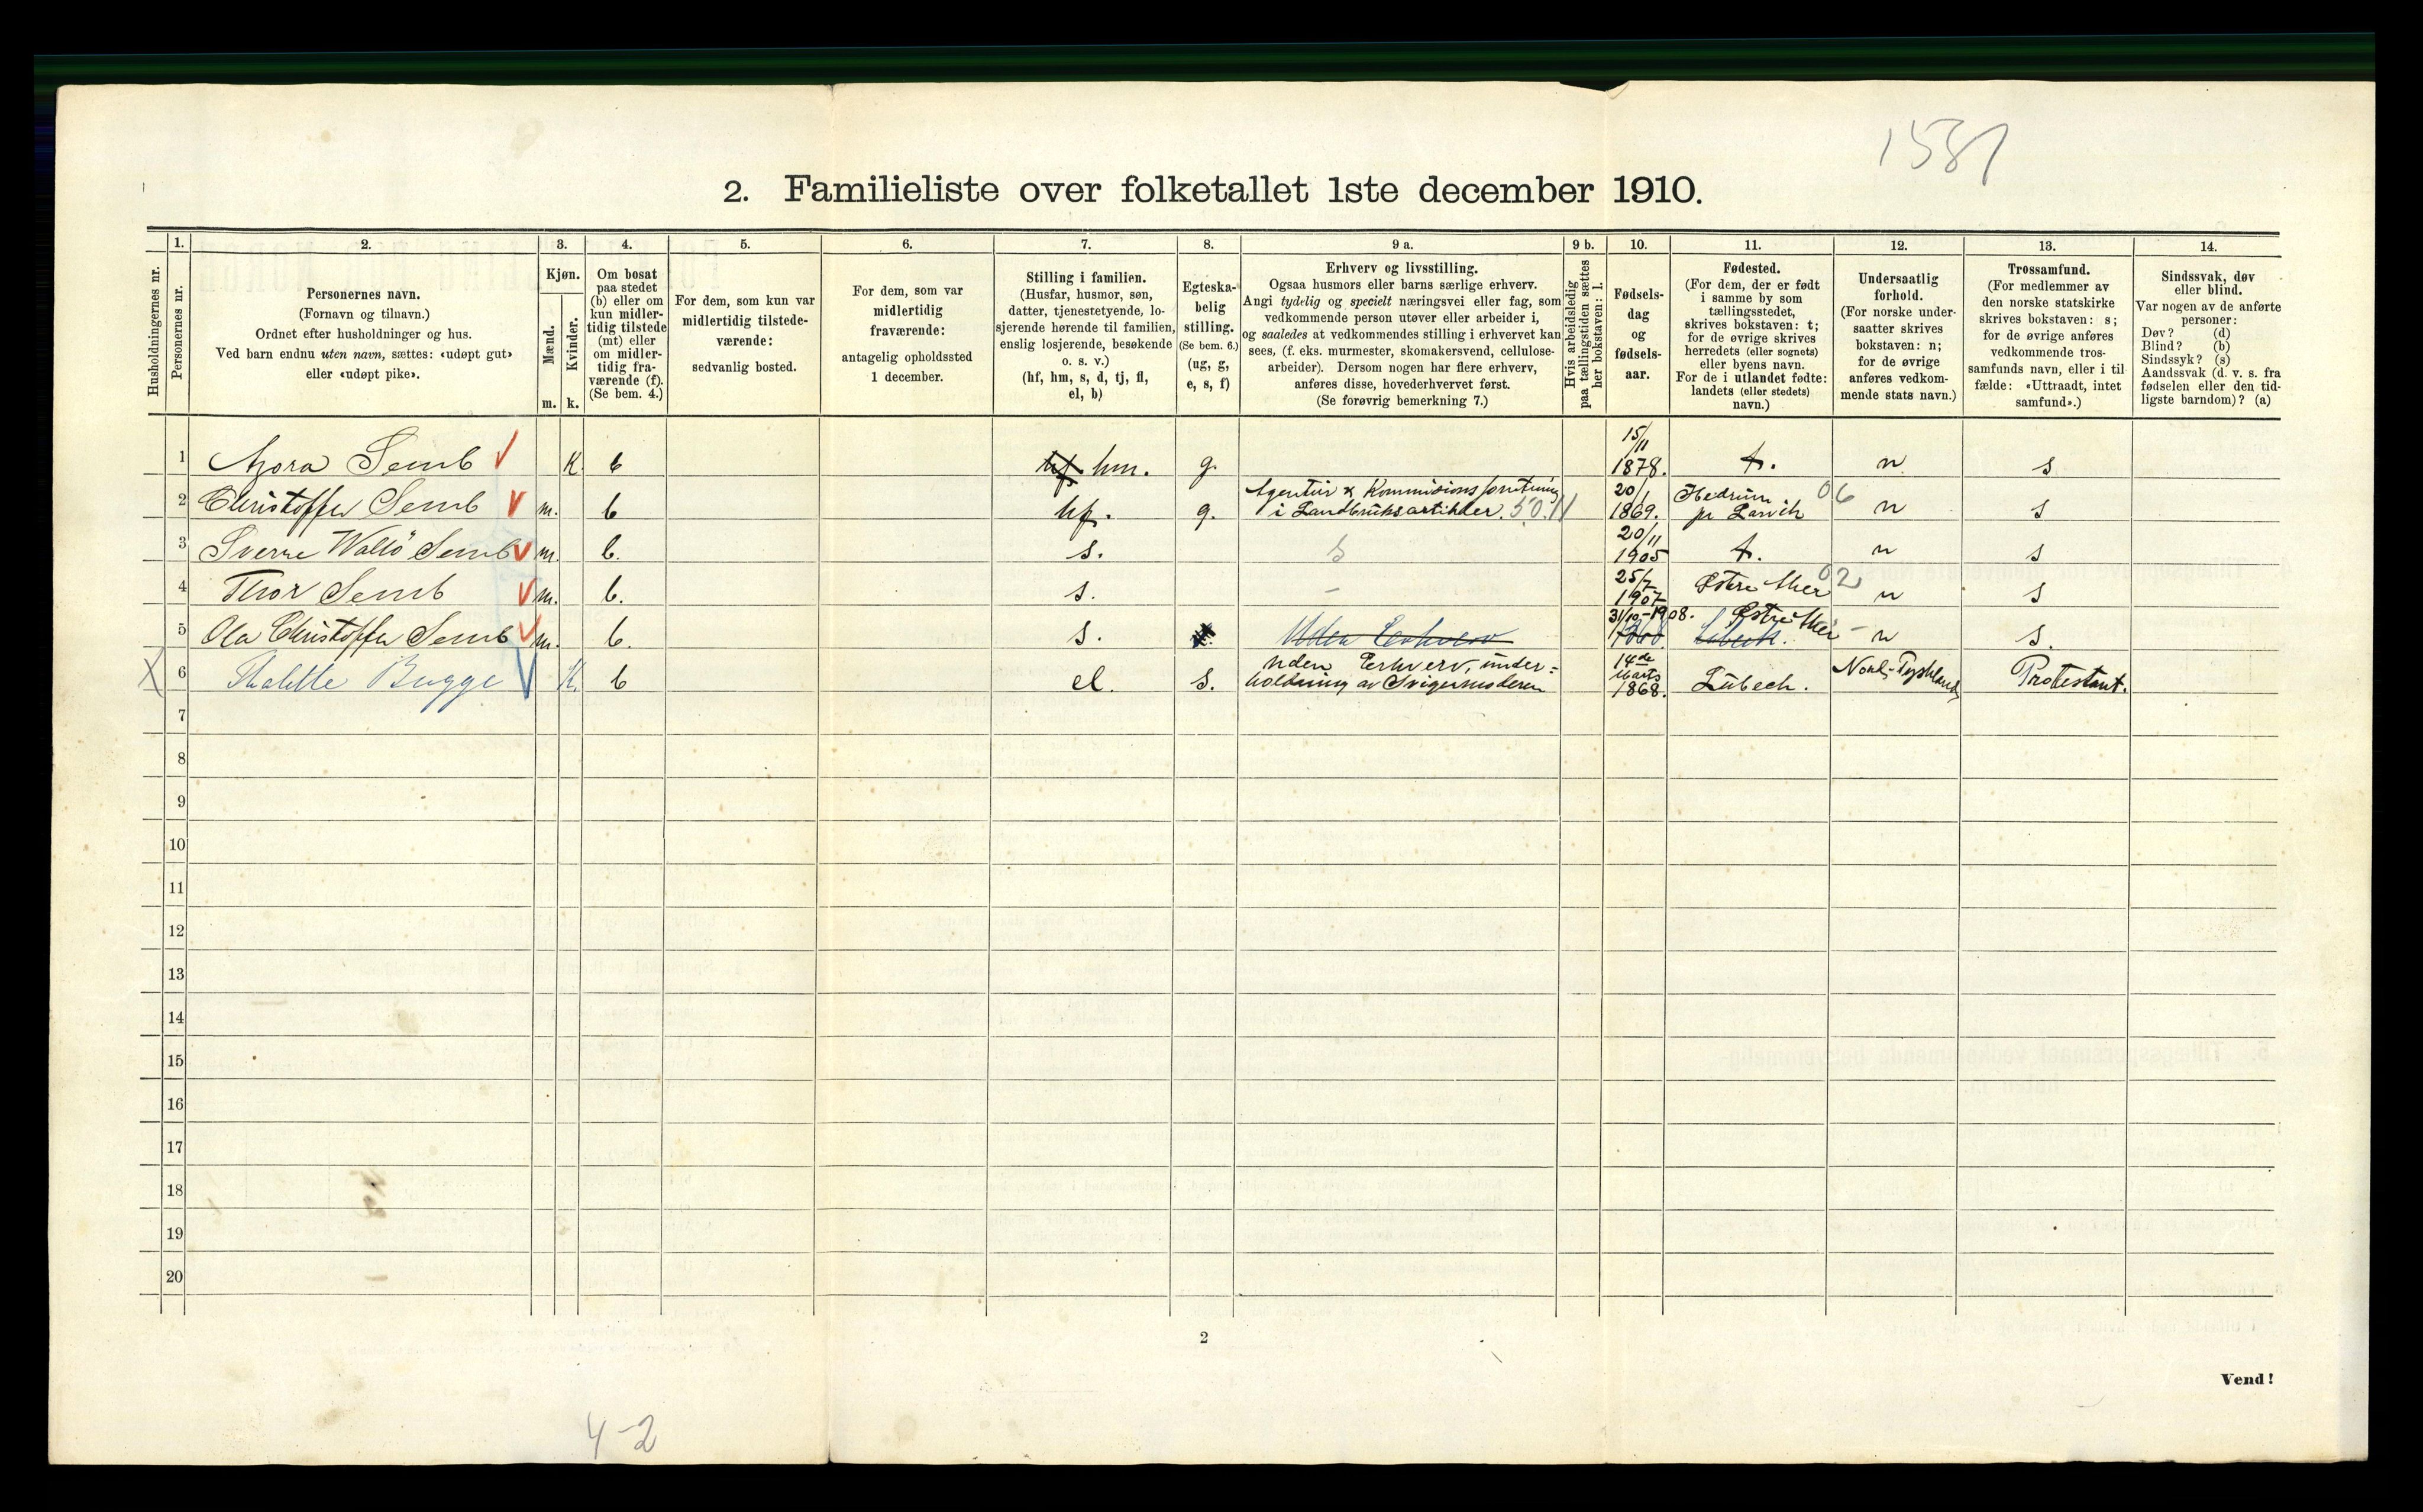 1581
2. Familieliste over folketallet 1ste december 1910.
Husholdningernes nr.
1.
Personernes nr.
2.
Personernes navn.
(Fornavn og tilnavn.)
Ordnet efter husholdninger og hus.
Ved barn endnu uten navn, sættes: «udøpt gut»
eller «udøpt pike».
3.
Kjøn.
Mænd.
Kvinder.
m. k.
4.
Om bosat
paa stedet
(b) eller om
kun midler-
tidig tilstede
(mt) eller
om midler-
tidig fra-
værende (f).
(Se bem. 4.)
5.
For dem, som kun var
midlertidig tilstede-
værende:
sedvanlig bosted.
6.
For dem, som var
midlertidig
fraværende:
antagelig opholdssted
1 december.
7.
Stilling i familien.
(Husfar, husmor, søn,
datter, tjenestetyende, lo-
sjerende hørende til familien,
enslig losjerende, besøkende
o. s. v.)
(hf, hm, s, d, tj, fl,
el, b)
8.
Egteska-
belig
stilling.
(Se bem. 6.)
(ug, g,
e, s, f)
9 a.
Erhverv og livsstilling.
Ogsaa husmors eller barns særlige erhverv.
Angi tydelig og specielt næringsvei eller fag, som
vedkommende person utøver eller arbeider i,
og saaledes at vedkommendes stilling i erhvervet kan
sees, (f. eks. murmester, skomakersvend, cellulose-
arbeider). Dersom nogen har flere erhverv,
anføres disse, hovederhvervet først.
(Se forøvrig bemerkning 7.)
9 b.
Hvis arbeidsledig
paa tællingstiden sættes
her bokstaven: l.
10.
Fødsels-
dag
og
fødsels-
aar.
11.
Fødested.
(For dem, der er født
i samme by som
tællingsstedet,
skrives bokstaven: t;
for de øvrige skrives
herredets (eller sognets)
eller byens navn.
For de i utlandet fødte:
landets (eller stedets)
navn.)
12.
Undersaatlig
forhold.
(For norske under-
saatter skrives
bokstaven: n;
for de øvrige
anføres vedkom-
mende stats navn.)
13.
Trossamfund.
(For medlemmer av
den norske statskirke
skrives bokstaven: s;
for de øvrige anføres
vedkommende tros-
samfunds navn, eller i til-
fælde: «Uttraadt, intet
samfund».)
14.
Sindssvak, døv
eller blind.
Var nogen av de anførte
personer:
Døv? (d)
Blind? (b)
Sindssyk? (s)
Aandssvak (d. v. s. fra
fødselen eller den tid-
ligste barndom)? (a)
1 Semb K b hf. hm. g. 15/11 1878. t. n s
2 Christoffer Semb m. b hf. g. Agentur & Kommisionsforretning i Landbruksartikler. 50.11 20/1 1869. Hedrum pr Larvik 06 n s
3 Sverre Wallö Semb m. b. s. s 20/11 1905 t. n s
4 Thor Semb m. b. s. – 25/7 1907 Østre Aker 02 n s
5 Ola Christoffer Semb m. b. s. Uden Erhverv 31/10-1908. Østre Aker Lübeck. n s.
6 Bugge K. b el. s. Uden Erhverv, under= holdning av Svigermoderen 14de Marts 1868. Lübeck. Nord-Tyskland Protestant.
7
8
9
10
11
12
13
14
15
16
17
18
19
20
2
Vend!
4-2